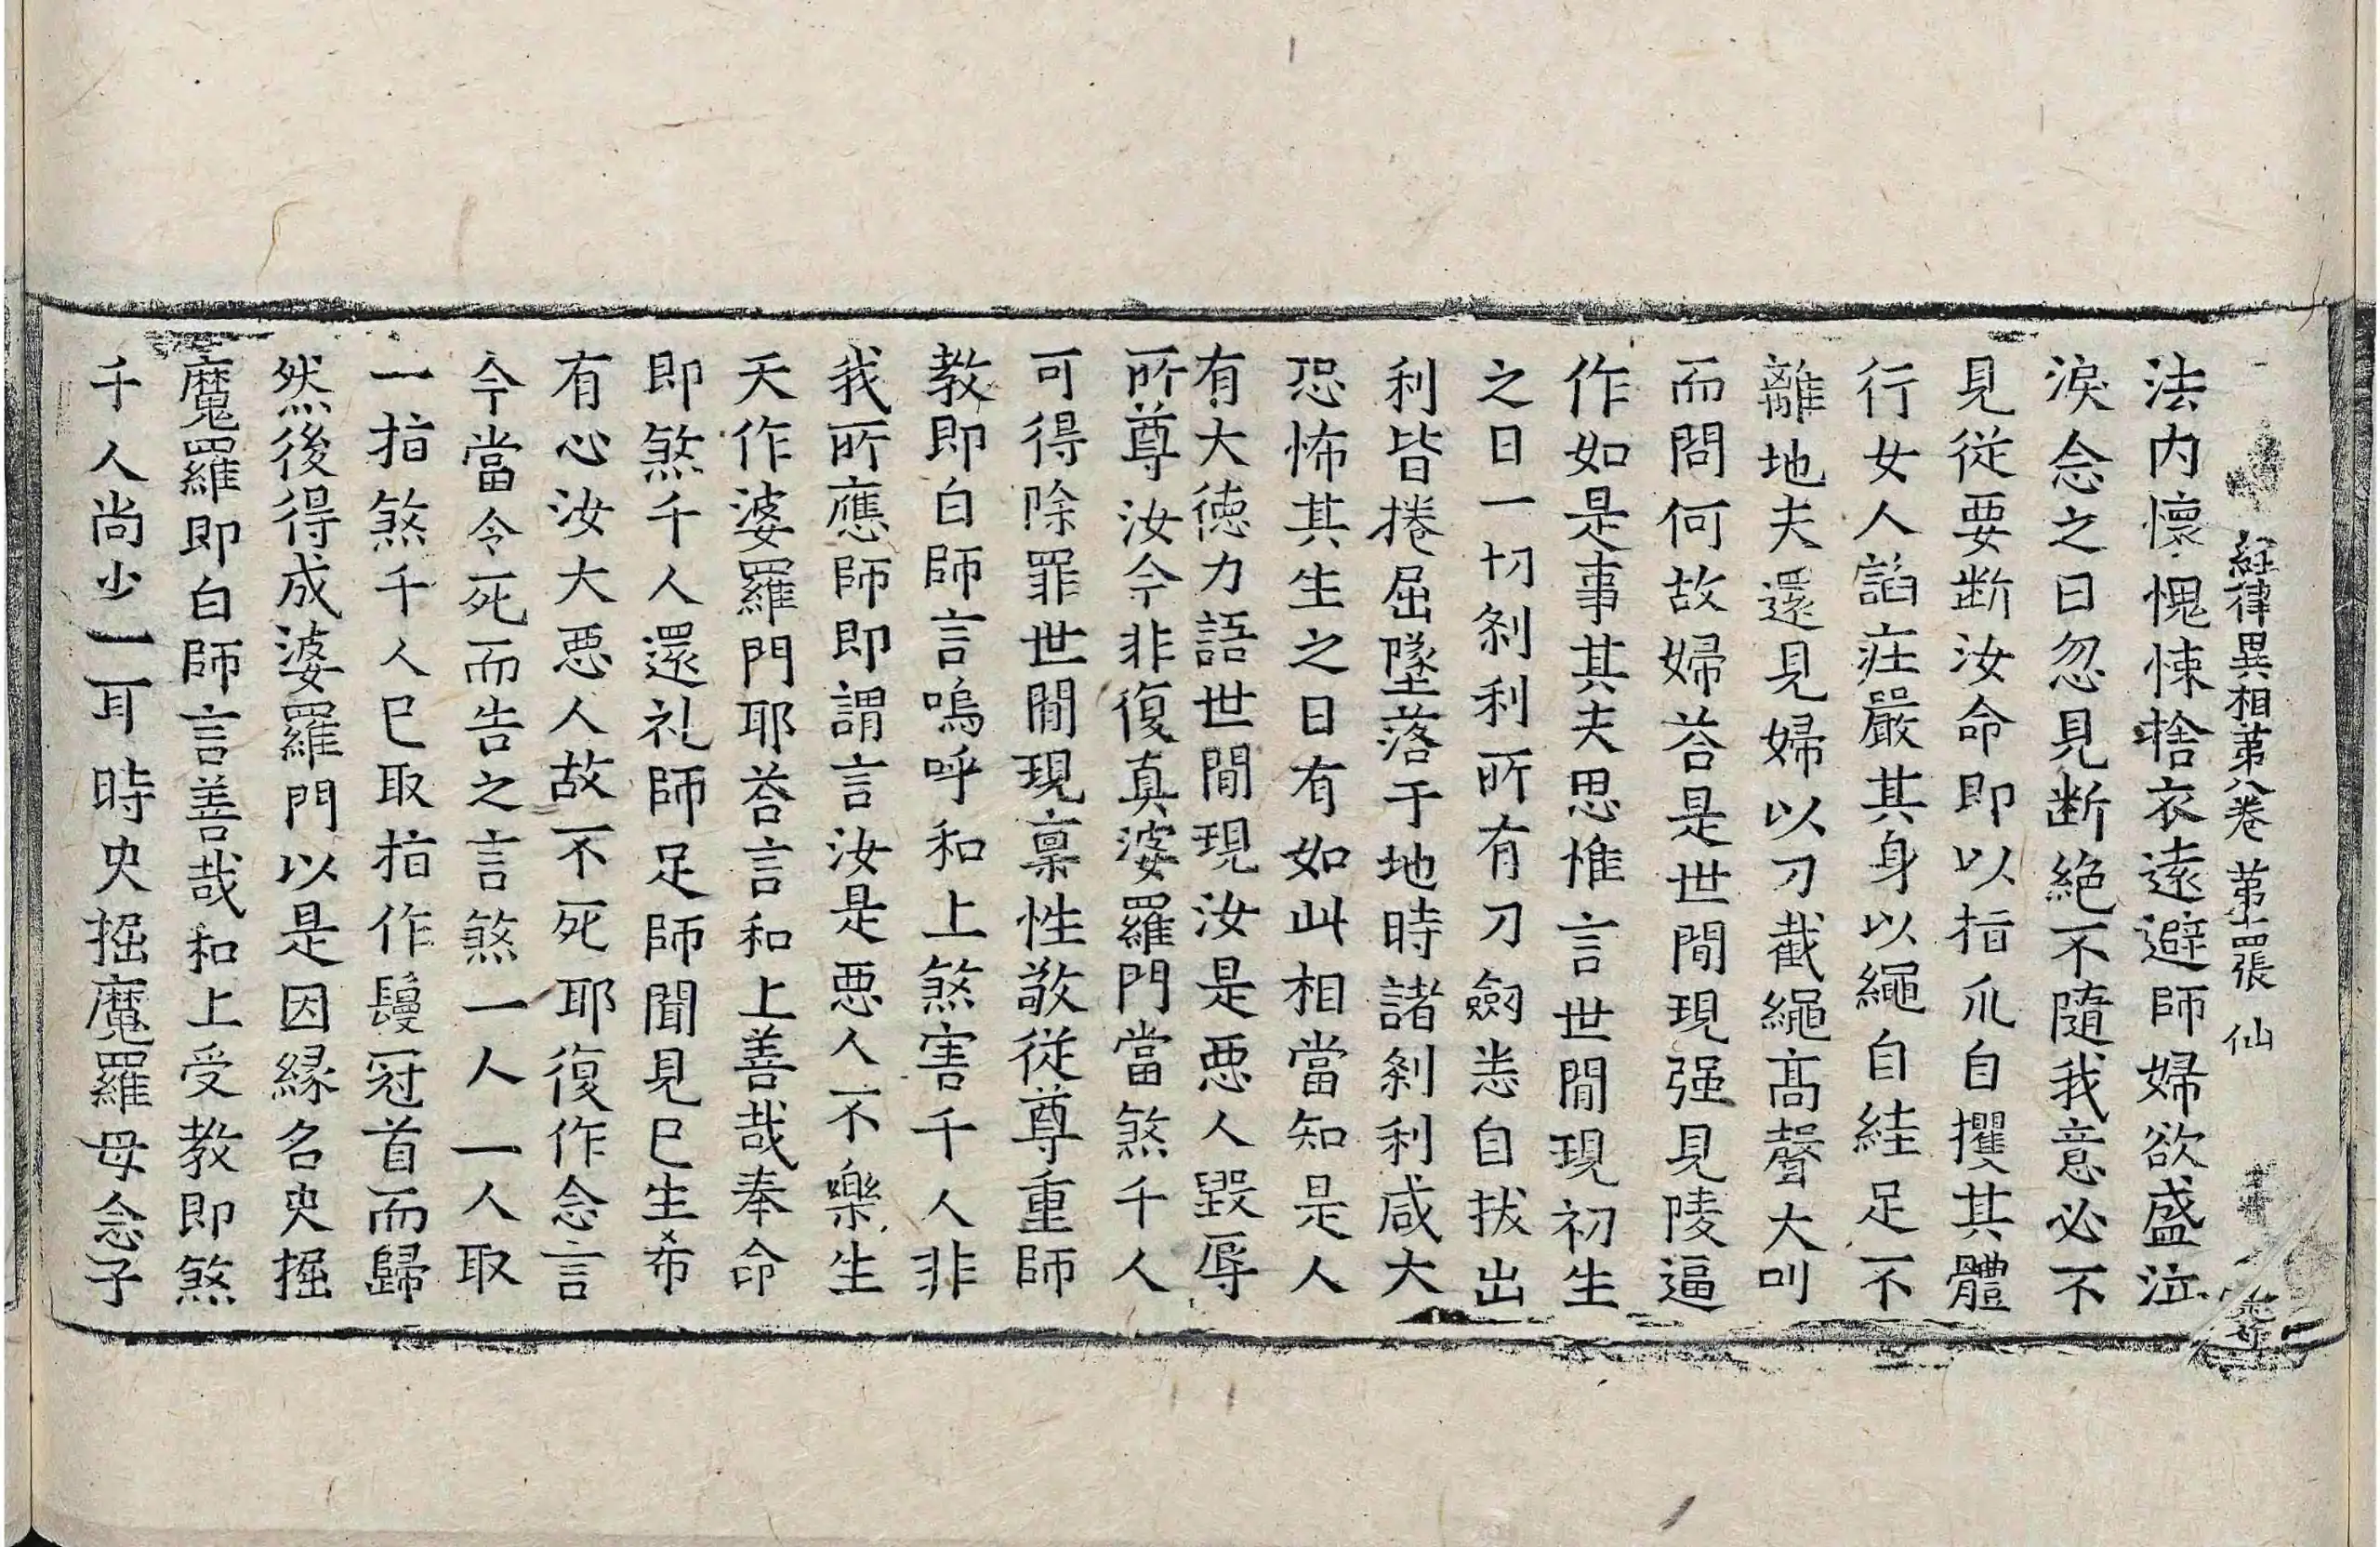 經律異相第八卷 第十四張 仙
法内懷愧悚捨衣遠避師婦欲盛泣
淚念之曰忽見断絶不隨我意必不
見従要断汝命即以指爪自攫其體
行女人謟庄嚴其身以繩自絓足不
離地夫還見婦以刀截繩髙聲大叫
而問何故婦荅是世閒現强見陵逼
作如是事其夫思惟言世閒現初生
之日一切刹利所有刀劒悉自拔出
利皆捲屈墜落于地時諸刹利咸大
恐怖其生之日有如此相當知是人
有大徳力語世閒現汝是悪人毀辱
所尊汝今非復真婆羅門當煞千人
可得除罪世閒現禀性敬従尊重師
教即白師言嗚呼和上煞害千人非
我所應師即謂言汝是悪人不樂生
天作婆羅門耶荅言和上善哉奉命
即煞千人還礼師足師聞見已生希
有心汝大悪人故不死耶復作念言
今當令死而告之言煞一人一人取
一指煞千人已取指作鬘冠首而歸
然後得成婆羅門以是因縁名央掘
魔羅即白師言善哉和上受教即煞
千人尚少一耳時央掘魔羅母念子